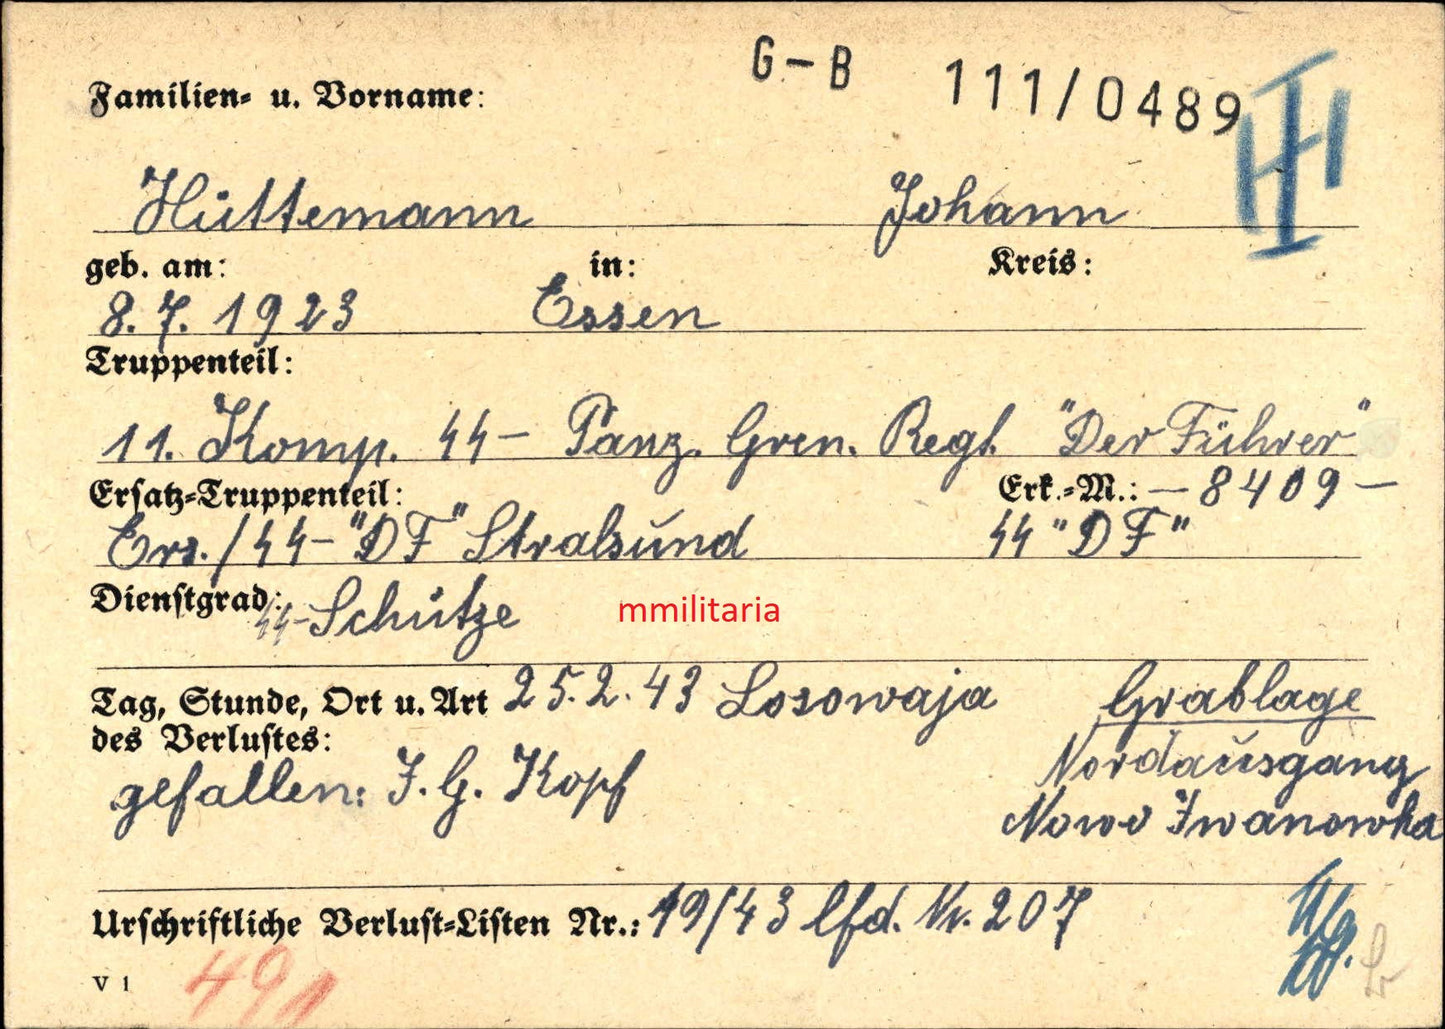 G-B 111/0489
Familien- u. Vorname:
Hüttemann Johann
geb. am: in: Kreis:
8.7.1923 Essen
Truppenteil:
11. Komp. SS- Panz. Gren. Regt. "Der Führer"
Ersatz-Truppenteil: Erk.-M.: -8409-
Ers./SS-"DF" Stralsund SS "DF"
Dienstgrad: SS-Schütze
mmilitaria
Tag, Stunde, Ort u. Art 25.2.43 Losowaja
des Verlustes:
gefallen: I.G. Kopf
Grablage
Nordausgang
Nowo Iwanowka
Urschriftliche Verlust-Listen Nr.: 19/43 lfd. Nr. 207
V 1
491